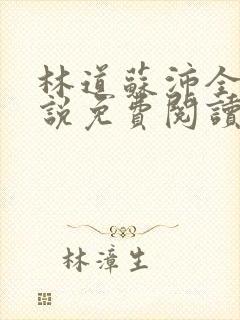 林道蘇沛全
說免費閱讀
林漳生